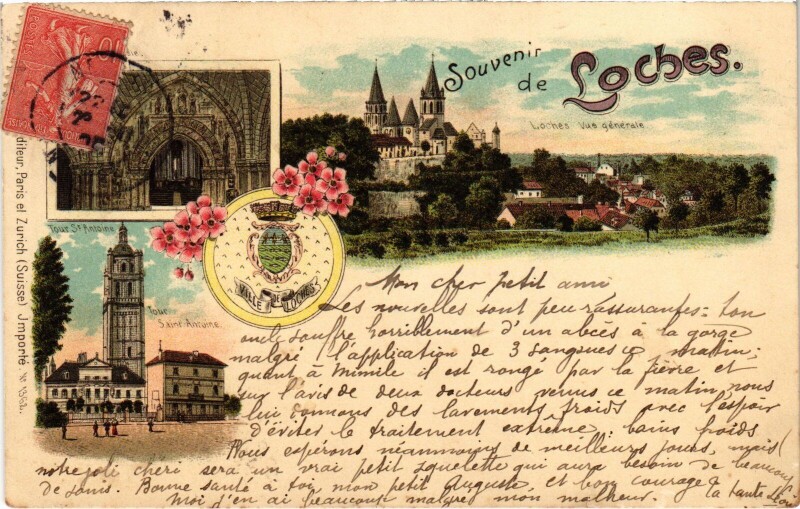 Souvenir
de
Loches.
Loches Vue générale.
Tour St Antoine
Tour
Saint-Antoine.
VILLE DE LOCHES
diteur. Paris et Zurich (Suisse) Jmporté No 1361.
Mon cher petit ami
Les nouvelles sont peu rassurantes: ton
oncle souffre horriblement d'un abcès à la gorge
malgré l'application de 3 sangsues ce matin;
quant à Mimile il est rongé par la fièvre et
sur l'avis de deux docteurs venus ce matin nous
lui donnons des lavements froids avec l'espoir
d'éviter le traitement extrême: bains froids
Nous espérons néanmoins de meilleurs jours, mais
notre joli chéri sera un vrai petit squelette qui aura besoin de beaucoup
de soins. Bonne santé à toi, mon petit Auguste, et bon courage
Moi j'en ai beaucoup malgré mon malheur. ta tante